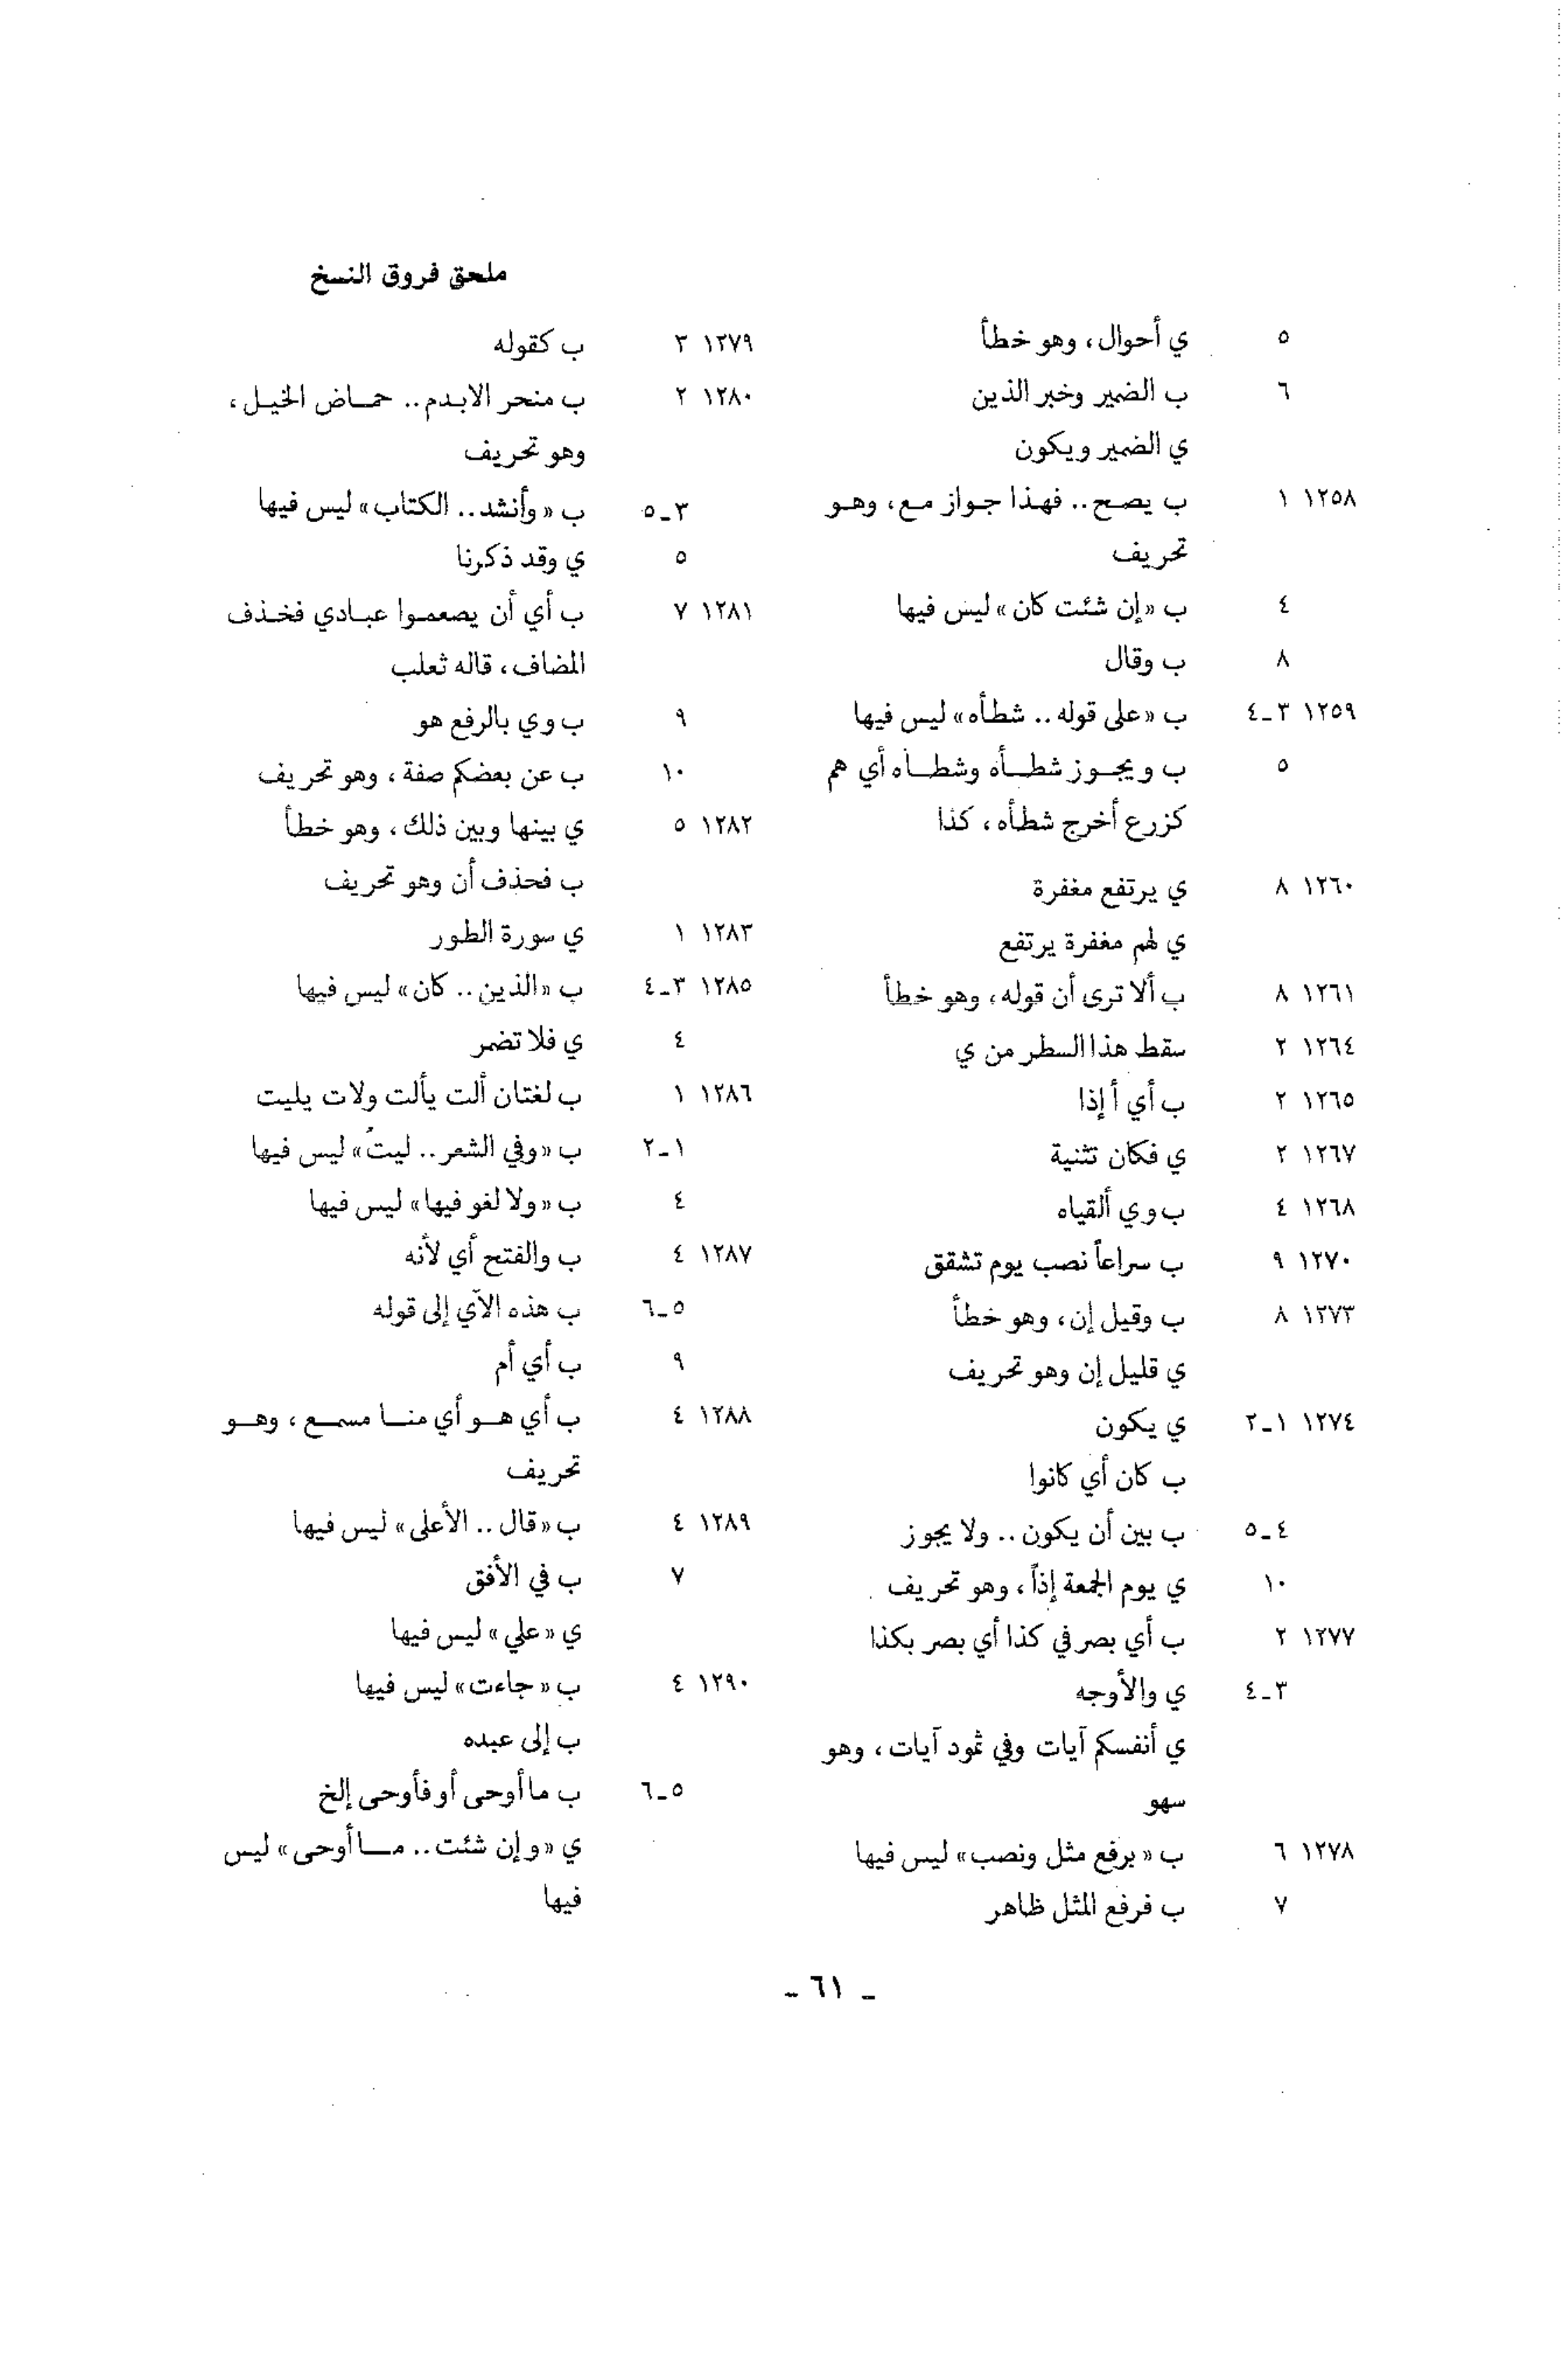 ملحق فروق النسخ
٥ ي أحوال، وهو خطأ
٦ ب الضمير وخبر الذين
ي الضمير ويكون
١٢٥٨ ١ ب يصح.. فهذا جواز مع، وهو
تحريف
٤ ب «إن شئت كان» ليس فيها
٨ ب وقال
١٢٥٩ ٣-٤ ب «على قوله.. شطأه» ليس فيها
٥ ب ويجوز شطأه وشطاه أي هم
كزرع أخرج شطأه، كذا
١٢٦٠ ٨ ي يرتفع مغفرة
ي لهم مغفرة يرتفع
١٢٦١ ٨ ب ألا ترى أن قوله، وهو خطأ
١٢٦٤ ٢ سقط هذا السطر من ي
١٢٦٥ ٢ ب أي أ إذا
١٢٦٧ ٢ ي فكان تثنية
١٢٦٨ ٤ ب وي ألقياه
١٢٧٠ ٩ ب سراعاً نصب يوم تشقق
١٢٧٣ ٨ ب وقيل إن، وهو خطأ
ي قليل إن وهو تحريف
١٢٧٤ ١-٢ ي يكون
ب كان أي كانوا
٤-٥ ب بين أن يكون.. ولا يجوز
١٠ ي يوم الجمعة إذاً، وهو تحريف
١٢٧٧ ٢ ب أي بصر في كذا أي بصر بكذا
٣-٤ ي والأوجه
ي أنفسكم آيات وفي ثمود آيات، وهو
سهو
١٢٧٨ ٦ ب «يرفع مثل ونصب» ليس فيها
٧ ب فرفع المثل ظاهر
١٢٧٩ ٣ ب كقوله
١٢٨٠ ٢ ب منحر الابدم.. حماض الخيل،
وهو تحريف
٣-٥ ب «وأنشد.. الكتاب» ليس فيها
٥ ي وقد ذكرنا
١٢٨١ ٧ ب أي أن يصعموا عبادي فخذف
المضاف، قاله ثعلب
٩ ب وي بالرفع هو
١٠ ب عن بعضكم صفة، وهو تحريف
١٢٨٢ ٥ ي بينها وبين ذلك، وهو خطأ
ب فحذف أن وهو تحريف
١٢٨٣ ١ ي سورة الطور
١٢٨٥ ٣-٤ ب «الذين.. كان» ليس فيها
٤ ي فلا تضمر
١٢٨٦ ١ ب لغتان ألت يألت ولات يليت
١-٢ ب «وفي الشعر.. ليتُ» ليس فيها
٤ ب «ولا لغو فيها» ليس فيها
١٢٨٧ ٤ ب والفتح أي لأنه
٥-٦ ب هذه الآي إلى قوله
٩ ب أي أم
١٢٨٨ ٤ ب أي هو أي منا مسمع، وهو
تحريف
١٢٨٩ ٤ ب «قال.. الأعلى» ليس فيها
٧ ب في الأفق
ي «علي» ليس فيها
١٢٩٠ ٤ ب «جاءت» ليس فيها
ب إلى عبده
٥-٦ ب ما أوحى أو فأوحى إلخ
ي «وإن شئت.. ما أوحى» ليس
فيها
- ٦١ -